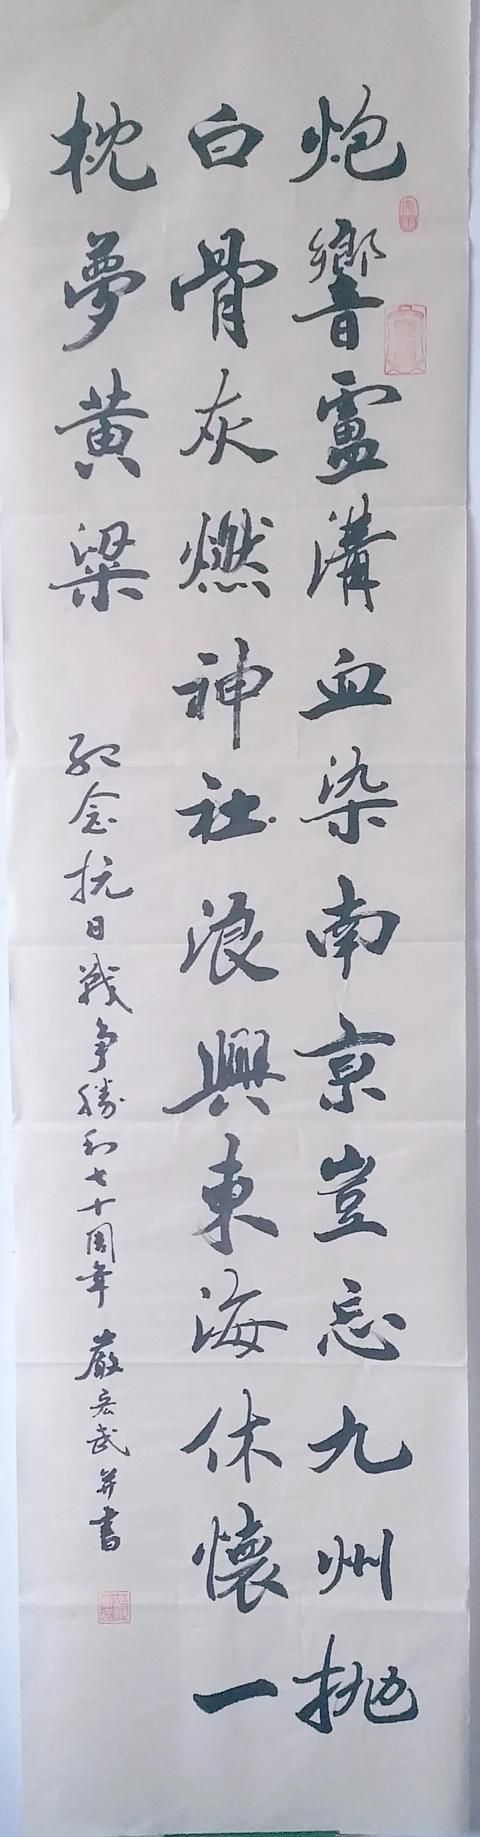 炮響盧溝血染南京豈忘九州拋
白骨灰燃神社浪興東海休懷一
枕夢黃粱
紀念抗日战争勝利七十周年 嚴宏武并書